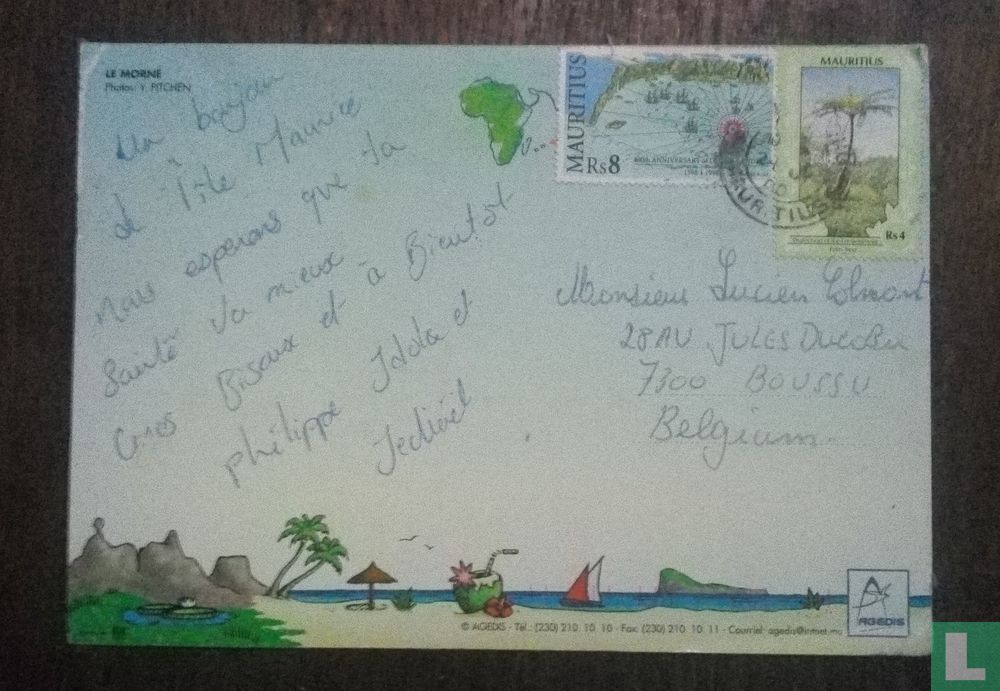 LE MORNE
Photos: Y. PITCHEN
Un bonjour
de l'île Maurice
Nous esperons que ta
Santé va mieux
Gros Bisoux et à Bientôt
philippe Jolola et
MAURITIUS
Rs8
400th ANNIVERSARY of
1598 1998
MAURITIUS
Rs4
MAURITIUS
Monsieur Lucien Colmont
28 AV JULES
7300 BOUSSU
Belgium.
© AGEDIS - Tél.: (230) 210 10 10 - Fax: (230) 210 10 11 - Courriel: agedis@intnet.mu
AGEDIS
L